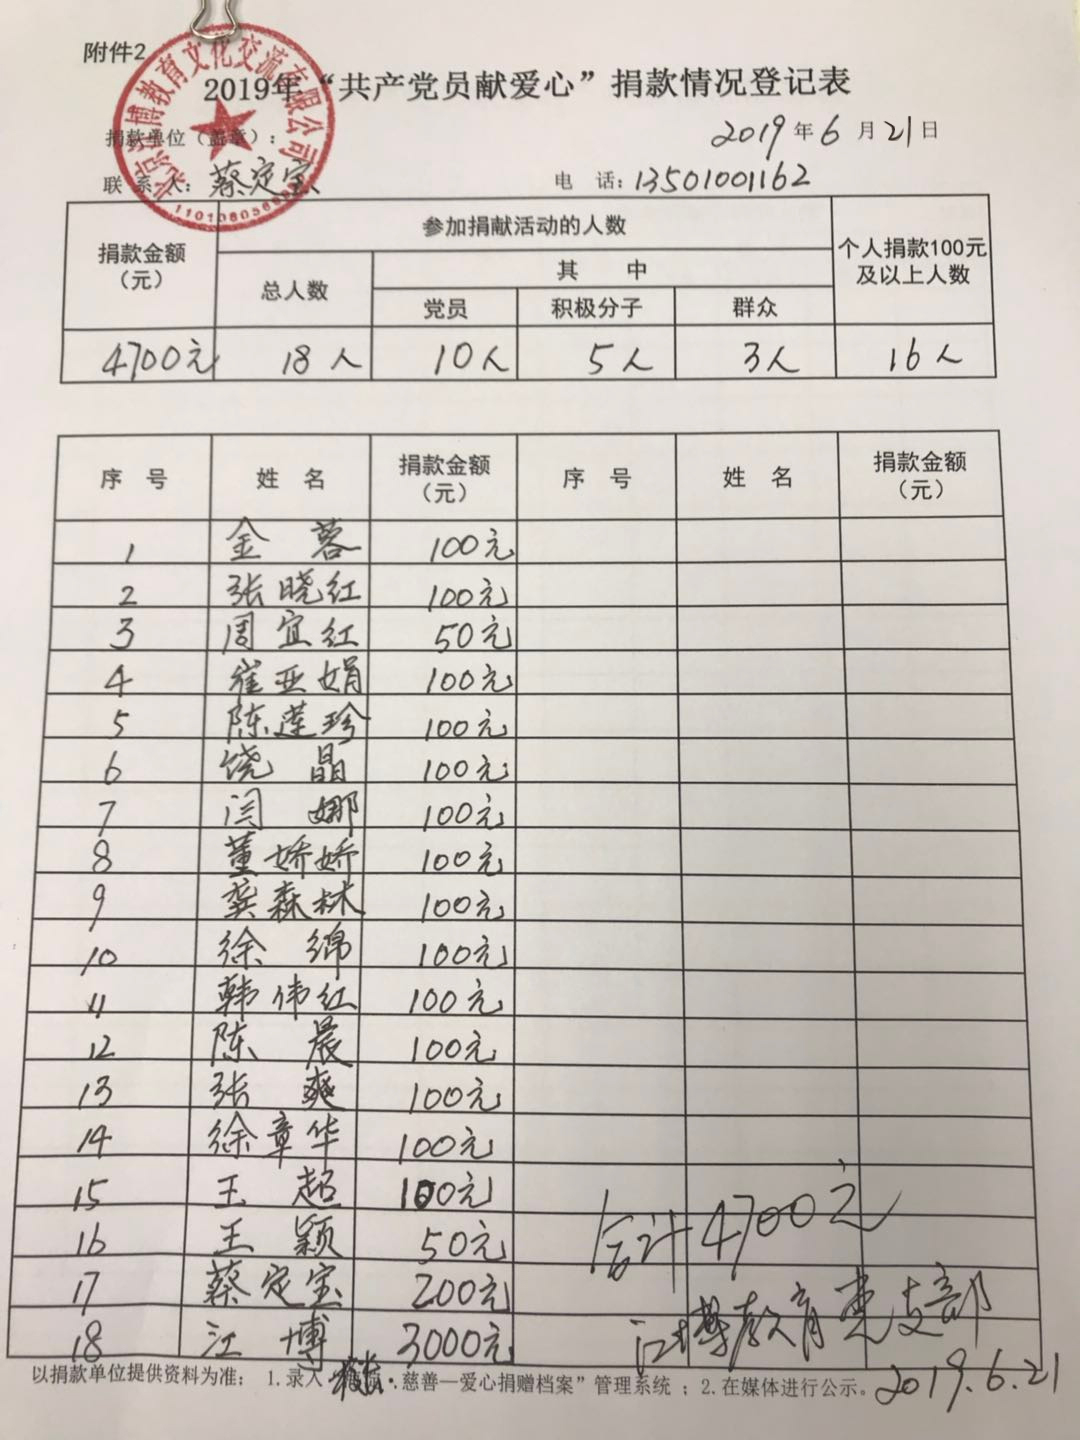 附件2
2019年“共产党员献爱心”捐款情况登记表
捐款单位（盖章）： 2019年6月21日
北京江博教育文化交流有限公司
联系人：蔡定宝 电 话：13501001162
捐款金额（元） 参加捐献活动的人数 个人捐款100元及以上人数
总人数 其 中
党员 积极分子 群众
4700元 18人 10人 5人 3人 16人
序 号 姓 名 捐款金额（元） 序 号 姓 名 捐款金额（元）
1 金蓉 100元
2 张晓红 100元
3 周宜红 50元
4 崔亚娟 100元
5 陈莲珍 100元
6 饶晶 100元
7 闫娜 100元
8 董娇娇 100元
9 龚森林 100元
10 徐绵 100元
11 韩伟红 100元
12 陈晨 100元
13 张爽 100元
14 徐章华 100元
15 王超 100元
16 王颖 50元
17 蔡定宝 200元
18 江博 3000元
合计4700元
江博教育党支部
2019.6.21
以捐款单位提供资料为准： 1.录入 慈善—爱心捐赠档案”管理系统；2.在媒体进行公示。